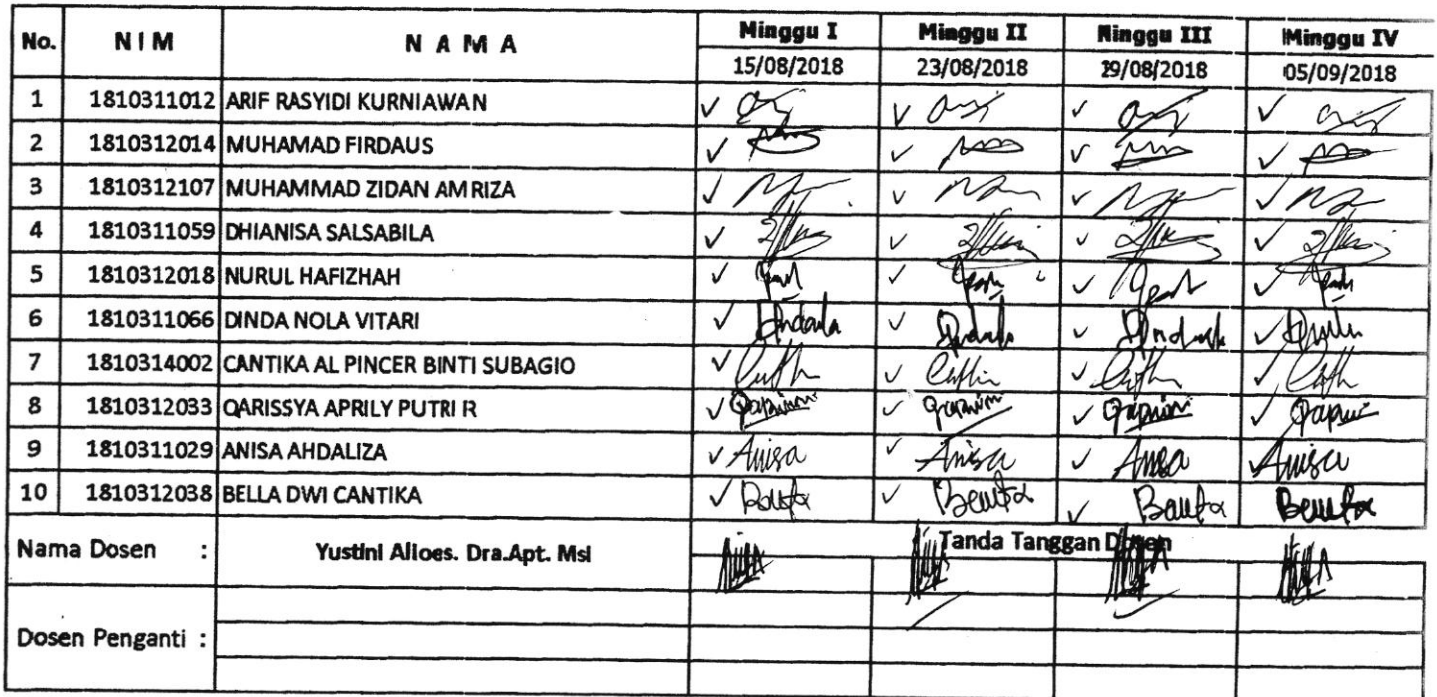 No. NIM NAMA Minggu I Minggu II Minggu III Minggu IV
15/08/2018 23/08/2018 29/08/2018 05/09/2018
1 1810311012 ARIF RASYIDI KURNIAWAN
2 1810312014 MUHAMAD FIRDAUS
3 1810312107 MUHAMMAD ZIDAN AMRIZA
4 1810311059 DHIANISA SALSABILA
5 1810312018 NURUL HAFIZHAH
6 1810311066 DINDA NOLA VITARI
7 1810314002 CANTIKA AL PINCER BINTI SUBAGIO
8 1810312033 QARISSYA APRILY PUTRI R
9 1810311029 ANISA AHDALIZA Anisa Anisa Anisa Anisa
10 1810312038 BELLA DWI CANTIKA
Nama Dosen : Yustini Alioes. Dra.Apt. Msi Tanda Tanggan Dosen
Dosen Penganti :